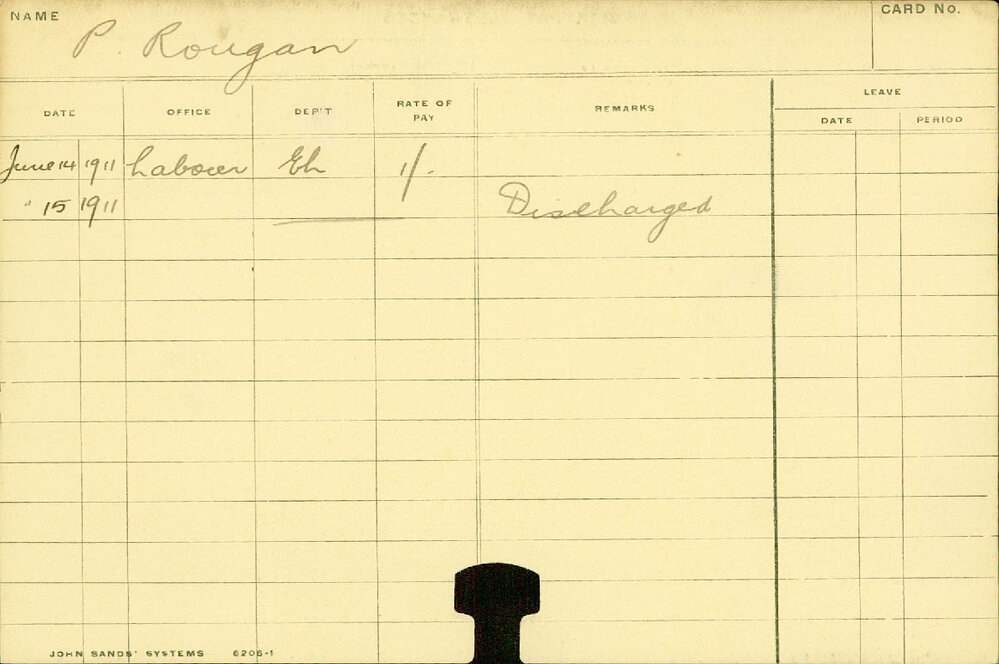 NAME P. Rougan CARD No.
DATE OFFICE DEP'T RATE OF PAY REMARKS LEAVE
DATE PERIOD
June 14 1911 Labourer 1/.
" 15 1911 Discharged
JOHN SANDS' SYSTEMS 6206-1